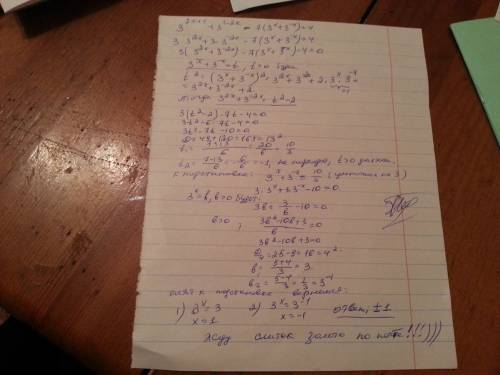 3 3^{2x} + 3·3^{-2x} - 7(3^x + 3^{-x}) = 4
3(3^{2x} + 3^{-2x}) - 7(3^x + 3^{-x}) - 4 = 0
3^x + 3^{-x} = t, t > 0
t^2 = (3^x + 3^{-x})^2 = 3^{2x} + 3^{-2x} + 2·3^x·3^{-x}
= 3^{2x} + 3^{-2x} + 2
тогда 3^{2x} + 3^{-2x} = t^2 - 2
3(t^2 - 2) - 7t - 4 = 0
3t^2 - 6 - 7t - 4 = 0
3t^2 - 7t - 10 = 0
D = 49 + 120 = 169 = 13^2
t_1 = (7+13)/6 = 20/6 = 10/3
t_2 = (7-13)/6 = -6/6 = -1, не
к подстановке: 3^x + 3^{-x} = 10/3 (умножим на 3)
3·3^x + 3·3^{-x} - 10 = 0
3^x = b, b > 0
3b + 3/b - 10 = 0
b > 0, (3b^2 - 10b + 3)/b = 0
3b^2 - 10b + 3 = 0
= 25 - 9 = 16 = 4^2
b_1 = (5+4)/3 = 3
b_2 = (5-4)/3 = 1/3 = 3^{-1}
к подстановке вернемся:
1) 3^x = 3 2) 3^x = 3^{-1} ответ: ±1
x = 1 x = -1
жду слиток золота по почте!!!)))